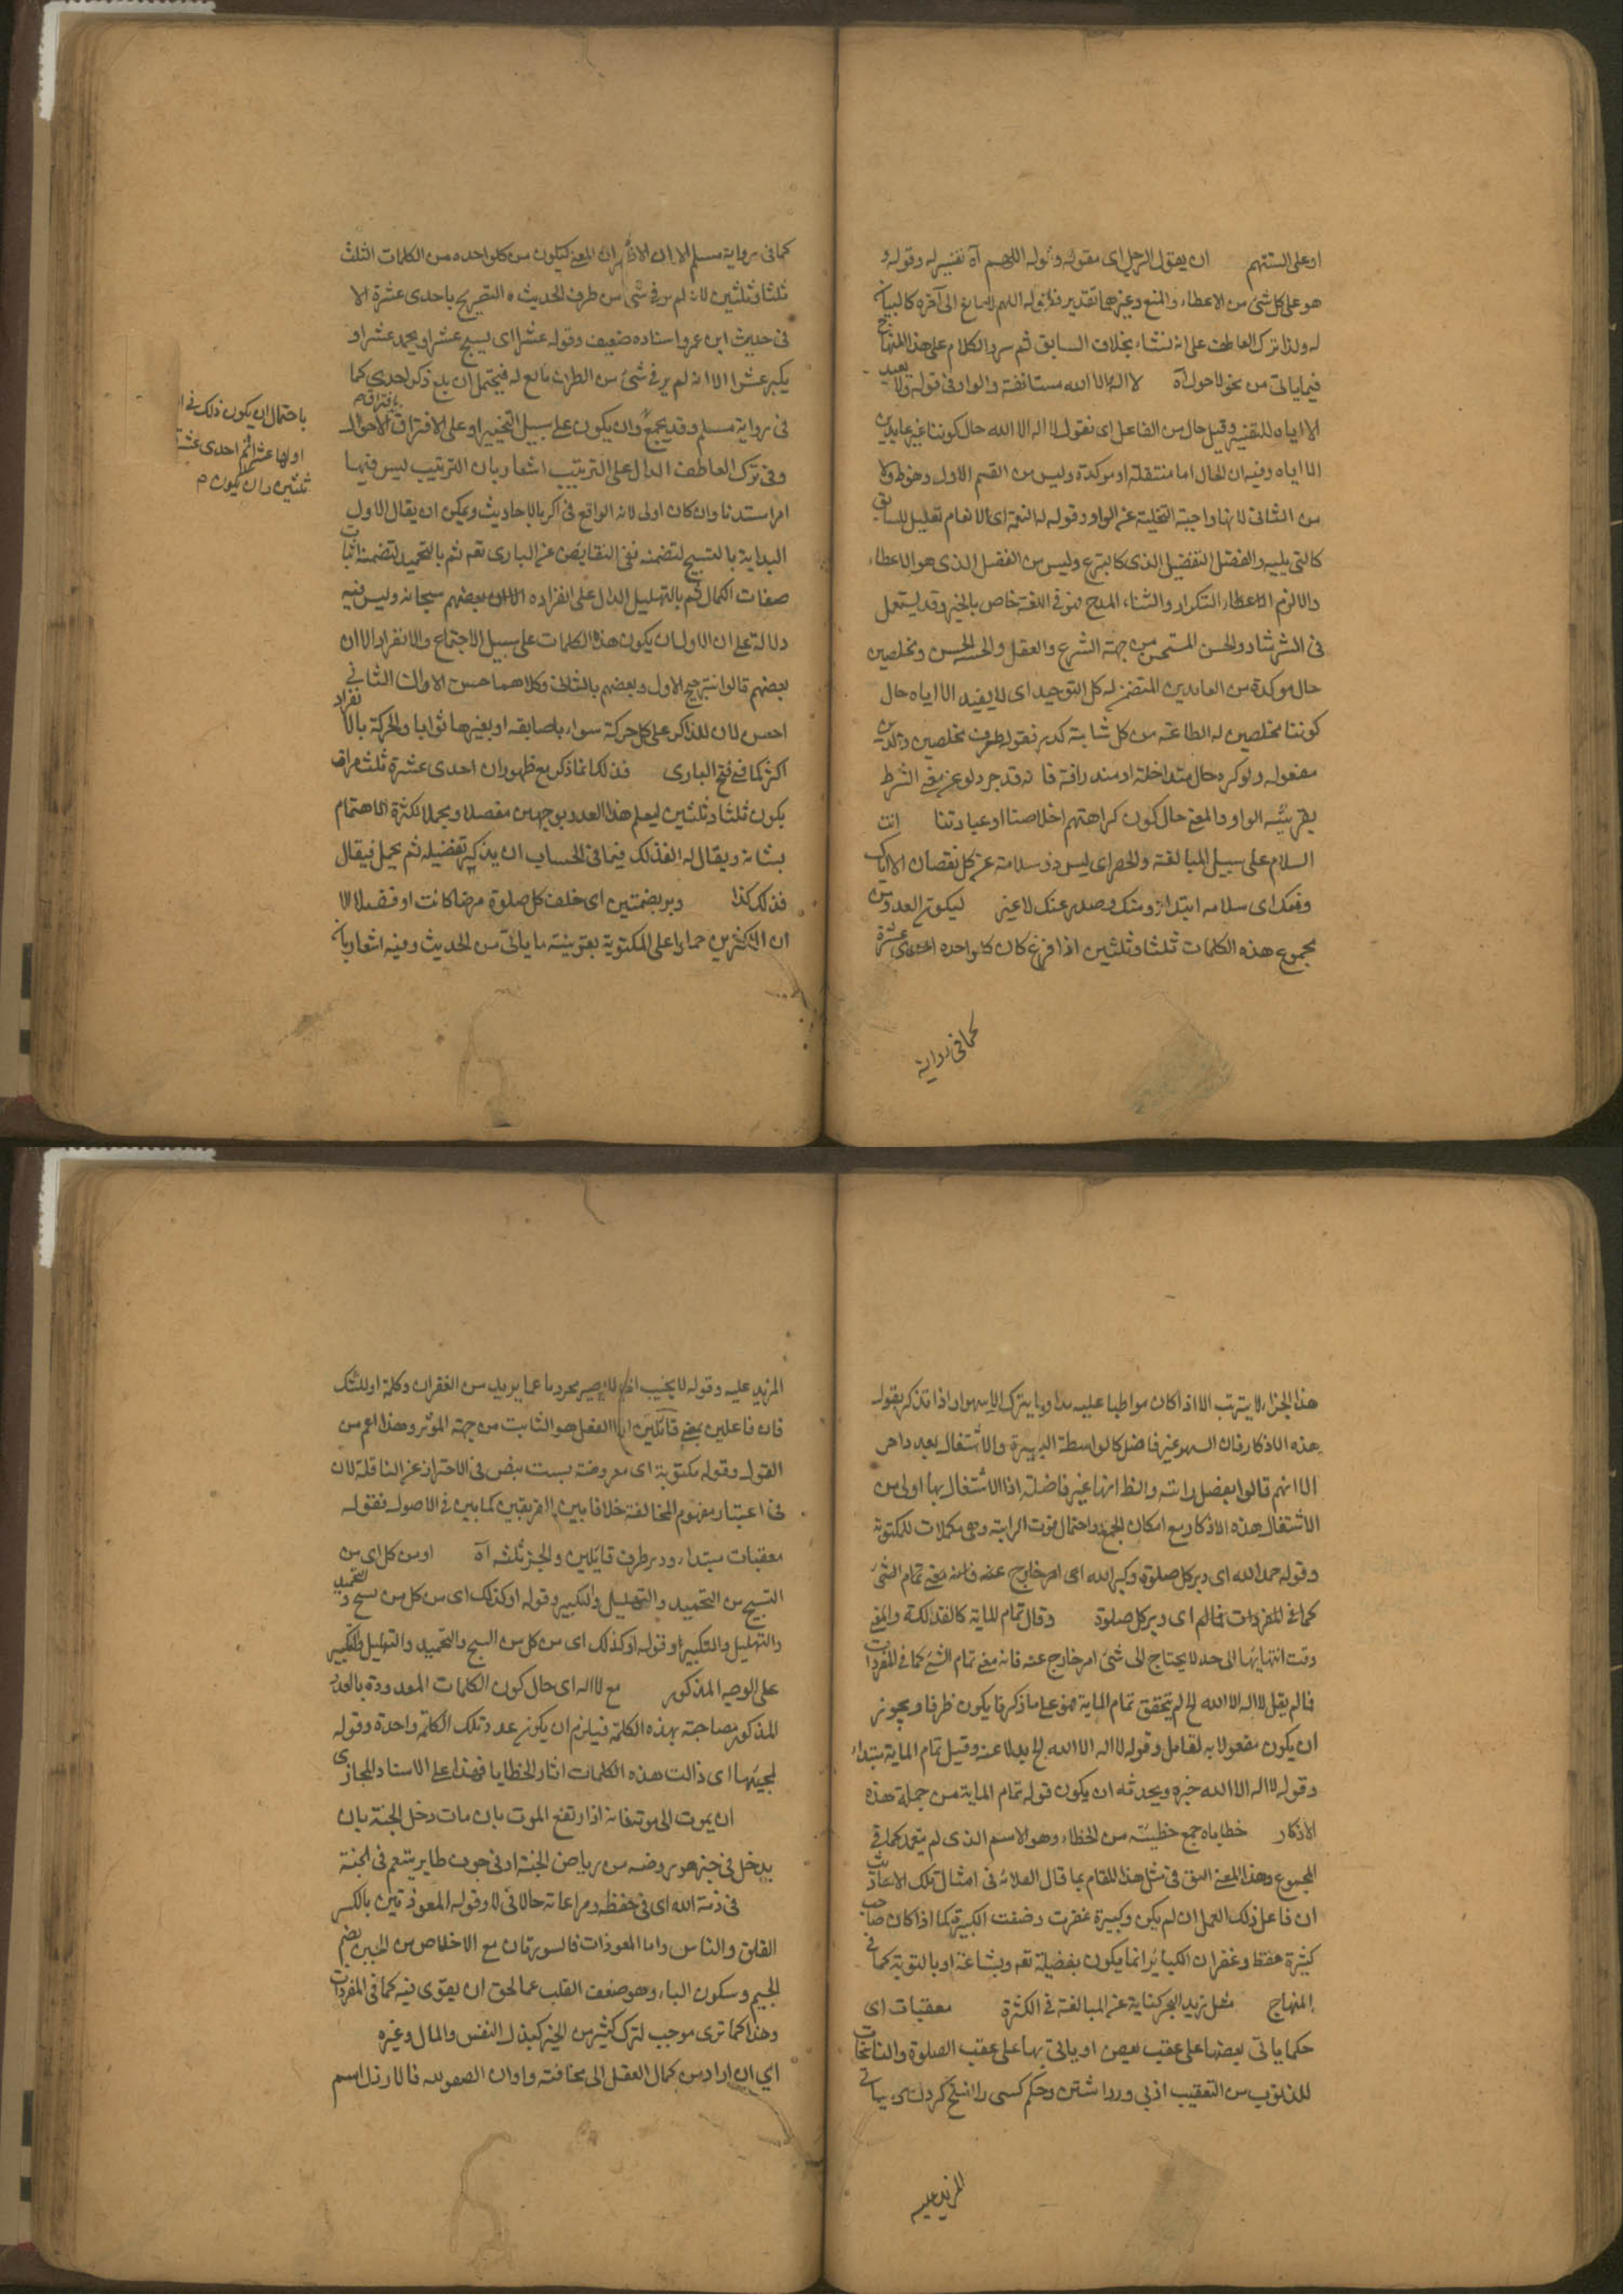 او على السنتهم ان يقول الرجل اى مقوله وقوله اللهم آه تفسير له وقوله و
هو على كل شئ من الاعطاء والمنع وغيرهما تقدير قوله اللهم لا مانع الى آخره كالبيان
له ولذا ترك العاطف على انه نشاء بخلاف السابق ثم سرد الكلام على هذا المنهاج
فيما ياتى من نحو لا حول آه لا اله الا الله مستانفة والواو فى قوله ولا نعبد
الا اياه للتفسير وقيل حال من الفاعل اى نقول لا اله الا الله حال كوننا غير عابدين
الا اياه وفيه ان الحال اما منتقلة او موكدة وليس من القسم الاول وهو ظ ولا
من الثانى لانها واجبة التخلية عن الواو وقوله له النعمة اى الانعام تعليل للسابق
كالتى يليه والفضل التفضيل الذى كالتبرع وليس من الفضل الذى هو الاعطاء
والا لزم التكرار والثناء المدح فهو فى اللغة خاص بالخير وقد يستعمل
فى الشر شاذ والحسن المستحسن من جهة الشرع والعقل والحس الحسن ومخلصين
حال موكدة من العابدين المتضمن له كل التوحيد اى لا يفيد الا اياه حال
كوننا مخلصين له الطاعة من كل شائبة كدر فقوله ظرف مخلصين والدين
مفعوله ولو كره حال متداخلة او مترادفة فانه قد جرد لو عن معنى الشرط
بقرينة الواو والمعنى حال كون كراهتهم اخلاصنا او عبادتنا انت
السلام على سبيل المبالغة والحصر اى ليس ذو سلامة عن كل نقصان الا اياك
ومنك اى سلامه ابتداؤه منك وصدر عنك لا غير ليكون العدد من
مجموع هذه الكلمات ثلثا وثلثين اذا فرغ كان كل واحده احدى عشرة
كما فى رواية
كما فى رواية مسلم الا ان الاظهر ان المعنى ليكون من كل واحده من الكلمات الثلث
ثلثا وثلثين لانه لم ير فى شئ من طرف الحديث التصريح باحدى عشرة الا
فى حديث ابن عمر واسناده ضعيف وقوله عشرا اى يسبح عشرا ويحمد عشرا و
يكبر عشرا الا انه لم ير فى شئ من الطرق تابع له فيحتمل ان بلغ ذكر احدى كما
فى رواية مسلم وقد يجمع وان يكون على سبيل التخيير او على الافتراق بافتراق الاحوال
باحتمال ان يكون ذلك فى
اولها عشرا ثم احدى عشرة
ثلثين وان يكون م
وفى ترك العاطف الدال على الترتيب اشعار بان الترتيب ليس فيها
امرا مستدنا وان كان اولى لانه الواقع فى اكثر الاحاديث ويمكن ان يقال الاول
البداية بالتسبيح لتضمنه نفى النقايص عن البارى تعم ثم بالتحميد لتضمنه اثبات
صفات الكمال ثم بالتهليل الدال على انفراده بعضهم سبحانه وليس فيه
دلالة على ان الاولى ان يكون هذه الكلمات على سبيل الاجتماع والانفراد الا ان
بعضهم قالوا بترجيح الاول وبعضهم بالثانى وكلاهما حسن الا ان الثانى
احسن لان للذاكر على كل حركة سواء باصابعه او بغيرها ثوابا والحركة بالانفراد
اكثر كما فى فتح البارى فذلك انما ذكر مع ظهور ان احدى عشرة ثلث مرات
يكون ثلثا وثلثين ليعلم هذا العدد بوجهين مفصلا ومجملا لكثرة الاهتمام
بشانه ويقال له الفذلك فيما فى الحساب ان يذكر تفصيله ثم يجمل فيقال
فذلك كذا ودبر بضمتين اى خلف كل صلوة فرضا كانت او نفلا الا
ان الاكثرين حملوا على المكتوبة بقرينة ما ياتى من الحديث وفيه اشعار بان
هذا الجزاء لا يترتب الا اذا كان مواظبا عليه مداوما يترك لا سهوا واذا تذكر يقول
هذه الاذكار فان السهو غير فاصل كالواسطة اليسيرة والاشتغال بعد داص
الا انهم قالوا بفضل راتبة والظ انها غير فاضلة اذا الاشتغال بها اولى من
الاشتغال بهذه الاذكار مع امكان الجمع واحتمال فوت الراتبة وهى مكملات للمكتوبة
وقوله حمد الله اى دبر كل صلوة وكبر الله اى امر خارج عنه فانه معنى تمام الشئ
كما فى المفردات فالم اى دبر كل صلوة وقال تمام المائة كالفذلكة والمعنى
وقت انتهائها الى حد لا يحتاج الى شئ امر خارج عنه فانه معنى تمام الشئ كما فى المفردات
فالم يقل لا اله الا الله لخ لم يتحقق تمام المائة فهو على ما ذكر فا يكون ظرفا ويجوز
ان يكون مفعولا به لقال وقوله لا اله الا الله لخ بدلا عنه وقيل تمام المائة مبتداء
وقوله لا اله الا الله خبره ويحدثه ان يكون قوله تمام المائة من جملة هذه
الاذكار خطاياه جمع خطيئة من الخطاء وهو الاسم الذى لم يتعمد كما فى
المجموع وهذا المعنى اليق فى مثل هذا المقام بما قال العلائ فى امثال تلك الاحاديث
ان فاعل ذلك العمل ان لم يكن كبيرة غفرت وضفت الكبيرة كما اذا كان صاحب
كثيرة فقط وغفران الكبائر انما يكون بفضيلة تعم وبشاعة او بالتوبة كما فى
المنهاج مثل زبد البحر كناية عن المبالغة فى الكثرة معقبات اى
حكما ياتى بعضها على عقب بعض او ياتى بها على عقب الصلوة والناسخات
للذنوب من التعقيب از پى ورداشتن وحكم كسى را نسخ كردن
المزيد عليه
المزيد عليه وقوله لا يخيب اى لا يصير محروما عما يريد من الغفران وكلمة او للشك
فان فاعلين بمعنى قائلين الفعل هو الثابت من جهة الموثر وهذا اعم من
القول وقوله مكتوبة اى مفروضة ليست بنص فى الاحتراز عن النافلة لان
فى اعتبار مفهوم المخالفة خلافا بين الفريقين كما بين فى الاصول فقوله
معقبات مبتداء ودبر ظرف قائلين والخبر ثلثه آه او من كل اى من
التسبيح من التحميد والتهليل والتكبير وقوله او كذلك اى من كل من سبح والتحميد
والتهليل والتكبير او قوله او كذلك اى من كل من السبح والتحميد والتهليل والتكبير
على الوجه المذكور مع لا اله اى حال كون الكلمات المعدودة بالعدد
المذكور مصاحبة بهذه الكلمة فيلزم ان يكون عدد تلك الكلمة واحدة وقوله
لمحيتها اى ذالت هذه الكلمات اثار الخطايا فهذا على الاسناد المجازى
ان يموت الى موته فانه اذا رتفع الموت بان مات دخل الجنة بان
يدخل فى حيز هو روضه من رياض الجنة او فى جوف طاير يتنعم فى الجنة
فى ذمة الله اى فى حفظه ومراعاته حالا فى لا وقوله المعوذتين بالكسر
الفلق والناس واما المعوذات فالسورتان مع الاخلاص من الجبن بضم
الجيم وسكون الباء وهو ضعف القلب عما لحق ان يقوى فيه كما فى المفردات
وهذا كما ترى موجب لترك كثير من الخير كبذل النفس والمال وغيره
اي ان اراد من كمال العقل الى مخافته واوان الصغوليه فالارذل اسم